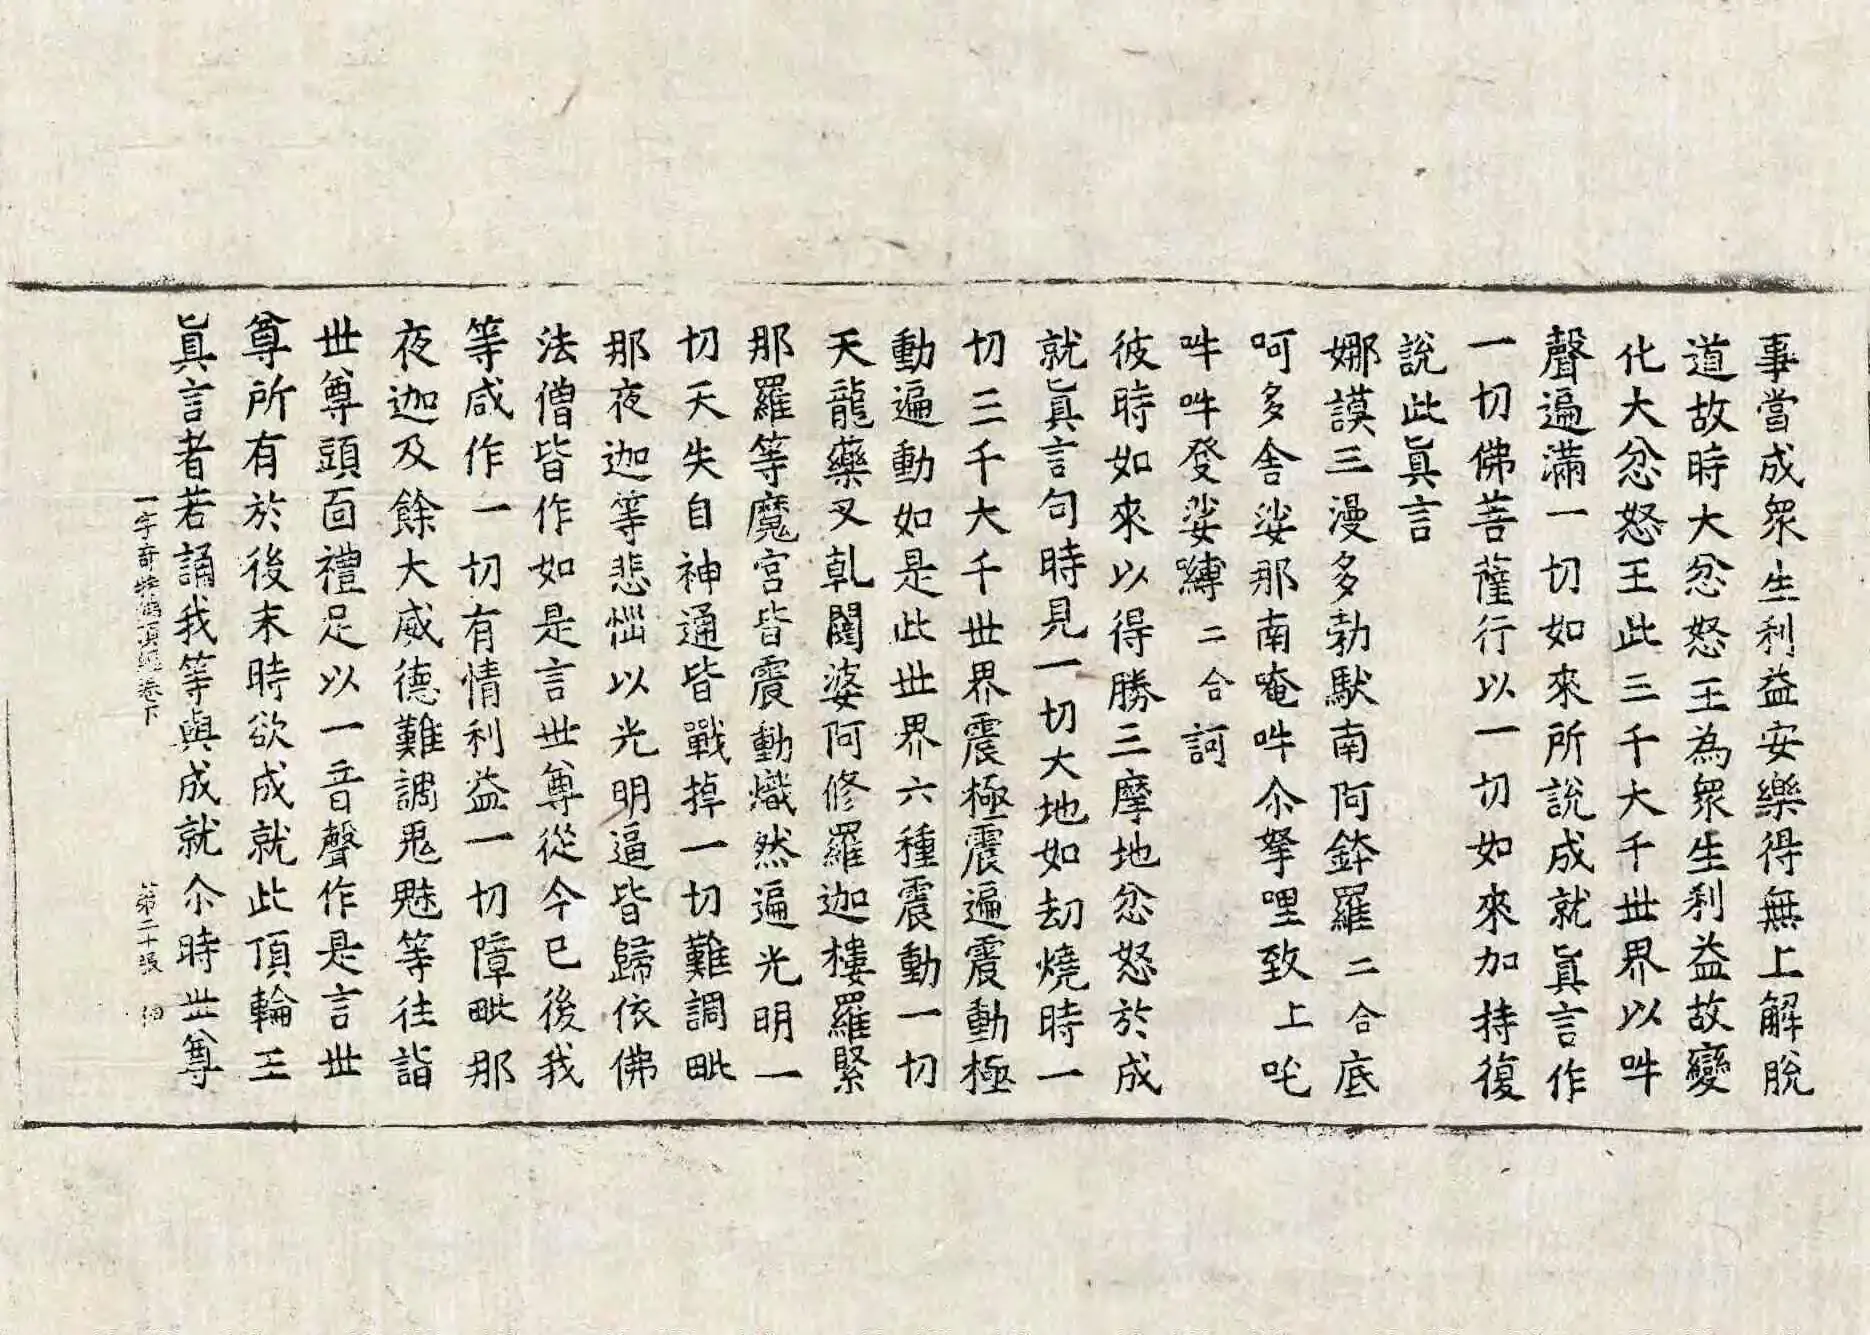 事當成衆生利益安樂得無上解脫
道故時大忿怒王為衆生利益故變
化大忿怒王此三千大千世界以吽
聲遍滿一切如來所說成就眞言作
一切佛菩薩行以一切如來加持復
說此眞言
娜謨三漫多勃馱南阿鉢羅二合底
呵多舍娑那南唵吽尒拏哩致上吒
吽吽發娑嚩二合訶
彼時如來以得勝三摩地忿怒於成
就眞言句時見一切大地如刧燒時一
切三千大千世界震極震遍震動極
動遍動如是此世界六種震動一切
天龍藥叉乹闥婆阿修羅迦樓羅緊
那羅等魔宮皆震動熾然遍光明一
切天失自神通皆戰掉一切難調毗
那夜迦等悲惱以光明逼皆歸依佛
法僧皆作如是言世尊從今已後我
等咸作一切有情利益一切障毗那
夜迦及餘大威德難調鬼魅等往詣
世尊頭面禮足以一音聲作是言世
尊所有於後末時欲成就此頂輪王
眞言者若誦我等與成就尒時世尊
一字奇特佛頂經卷下 第二十張